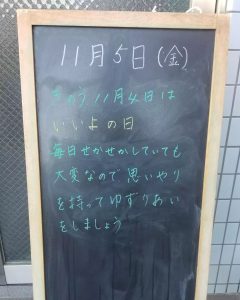 11月5日(金)
きのう11月4日は
いいよの日
毎日せかせかしていても
大変なので思いやり
を持ってゆずりあい
をしましょう